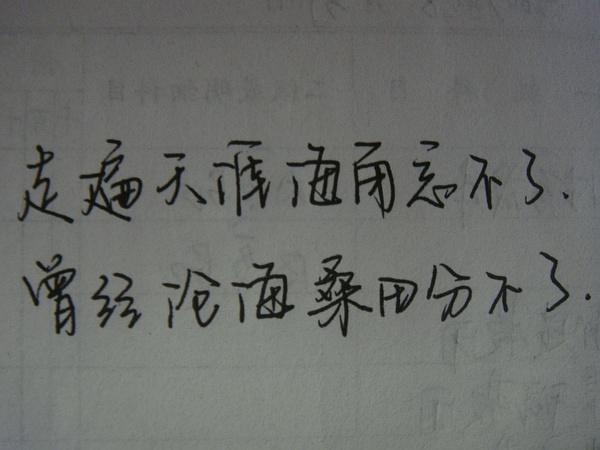 走遍天涯海角忘不了.
曾经沧海桑田分不了.